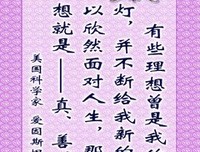 有些理想曾是我的
灯，并不断给我新的
以欣然面对人生，那
想就是——真、善
美国科学家 爱因斯